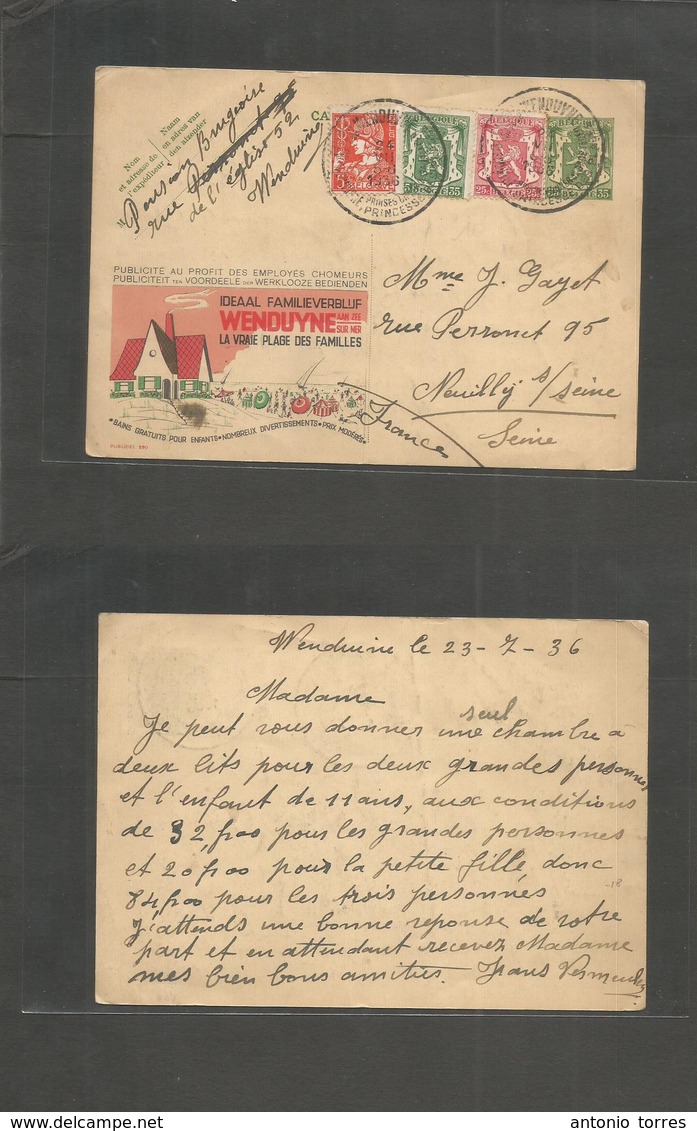 Nom
et adresse de
l'expéditeur
Naam
en adres van
den afzender
CA
Pension Brugeoise
rue
de l'église 52
Wenduine
BELGIQUE
35
BELGIE
25
35
PRINCESSE
PUBLICITÉ AU PROFIT DES EMPLOYÉS CHOMEURS
PUBLICITEIT TEN VOORDEELE DER WERKLOOZE BEDIENDEN
IDEAAL FAMILIEVERBLIJF
WENDUYNE AAN ZEE
SUR MER
LA VRAIE PLAGE DES FAMILLES
•BAINS GRATUITS POUR ENFANTS•NOMBREUX DIVERTISSEMENTS•PRIX MODÉRÉS•
PUBLIBEL 290
Mme J. Gayet
rue Perronet 95
Neuilly s/Seine
Seine
France
Wenduine le 23-7-36
Madame
Je peut vous donner une seul chambre à
deux lits pour les deux grandes personnes
et l'enfant de 11 ans, aux conditions
de 32,fr00 pour les grandes personnes
et 20 fr00 pour la petite fille donc
84,fr00 pour les trois personnes
J'attends une bonne reponse de votre
part et en attendant recevez Madame
mes bien bons amitiés. Frans
antonio torres